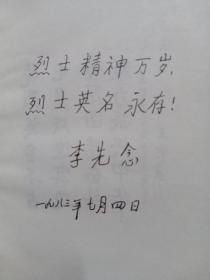 烈士精神万岁，
烈士英名永存！
李先念
一九八三年七月四日